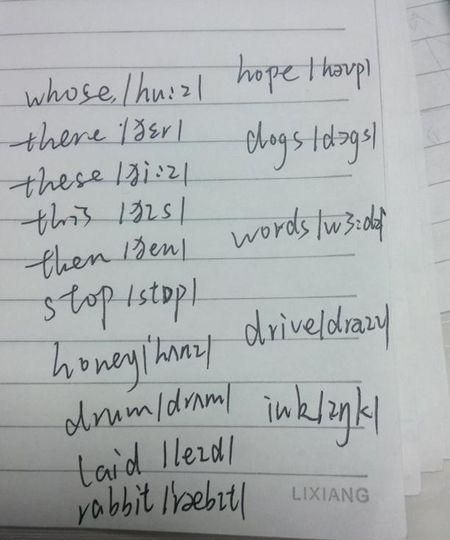 whose /hu:z/
there /ðɛr/
these /ði:z/
this /ðɪs/
then /ðen/
stop /stɒp/
honey /ˈhʌnɪ/
drum /drʌm/
laid /leɪd/
rabbit /ˈræbɪt/
hope /həʊp/
dogs /dɔgs/
words /wɜ:dz/
drive /draɪv/
ink /ɪŋk/
LIXIANG